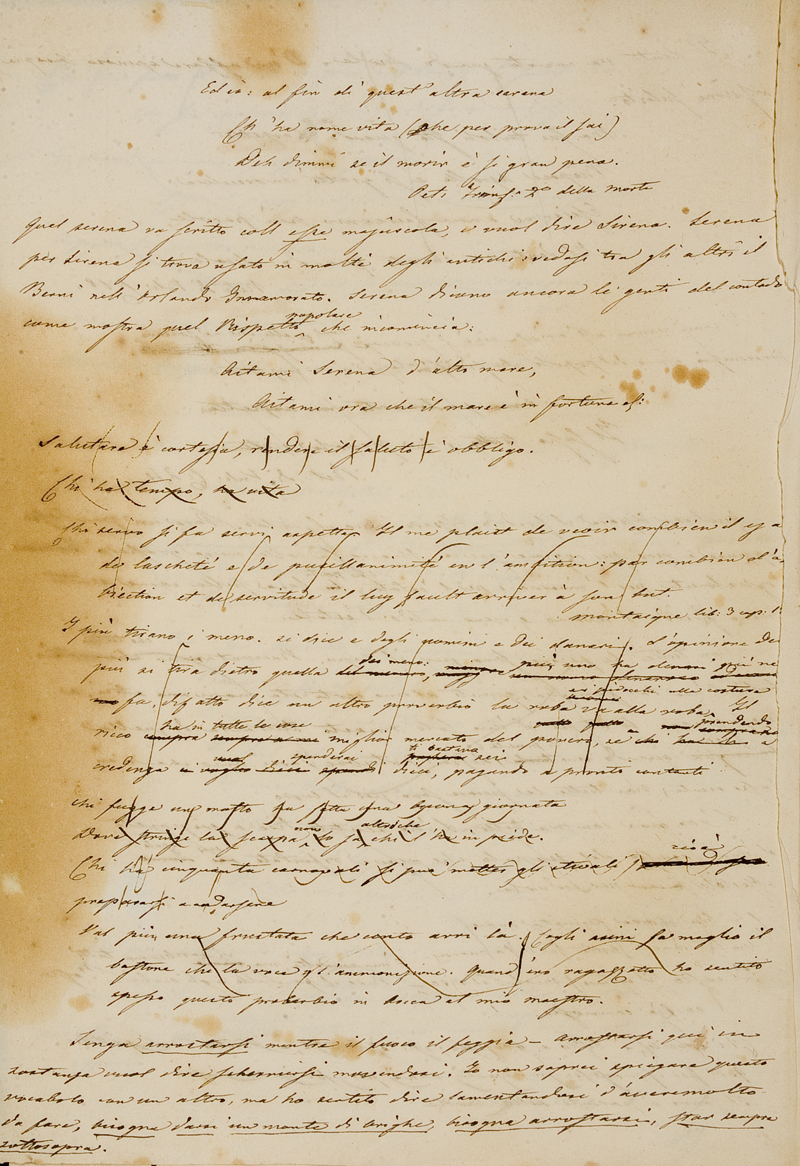 Ed io: al fin di quest'altra serena
Ch'ha nome vita (che per prova il sai)
Deh dimmi se il morir è si gran pena.
Pet: Trionf. 2º della Morte
Quel serena va scritto coll'esse majuscola, e vuol dire Sirena. Serena
per Sirena si trova usato in molti degli antichi: vedasi tra gli altri il
Berni nell'Orlando Innamorato. Serena dicono ancora le genti del contado
come mostra quel Rispetto popolare che incomincia:
Aitami Serena d'alto mare,
Aitami ora che il mare è in fortuna
Salutare è cortesia, rendere il saluto è obbligo.
Chi ha tempo, ha vita
Chi servo si fa servi aspetta. Il me plaist de veoir combien il y a
de lascheté e de pusillanimité en l'ambition: par combien d'a
biection et de servitude il luy fault arriver à son but.
Montaigne lib: 3 cap: 1
I più tirano i meno. si dice e degli uomini e dei danari. L'opinione dei
più si tira dietro quella dei meno: più uno ha denari più ne
fa, difatto dice un altro proverbio la roba va alla roba. Il
ricco ha in tutte le cose miglior mercato del povero, se prendendo a
credenza spenderai dieci, ti bastava sei pagando a pronti contanti
Chi fugge un matto ha fatto una buona giornata
Dove stringe la scarpa non lo sa altro che chi l'ha in piede.
Chi ha cinquanta carnevali si può metter gli stivali cioè
prepararsi a andarsene
Val più una frustata che cento arri là. Cogli asini fa meglio il
bastone che la voce o l'ammonizione. Quand'ero ragazzetto ho sentito
spesso questo proverbio in bocca al mio maestro.
Senza arrostarsi mentre il fuoco il feggia – Arrostarsi qui in
sostanza vuol dire schermirsi movendosi. Io non saprei spiegare questo
vocabolo con un altro, ma ho sentito dire lamentandosi d'aver molto
da fare, bisogna darsi un monte di brighe, bisogna arrostarsi, star sempre
sottosopra.